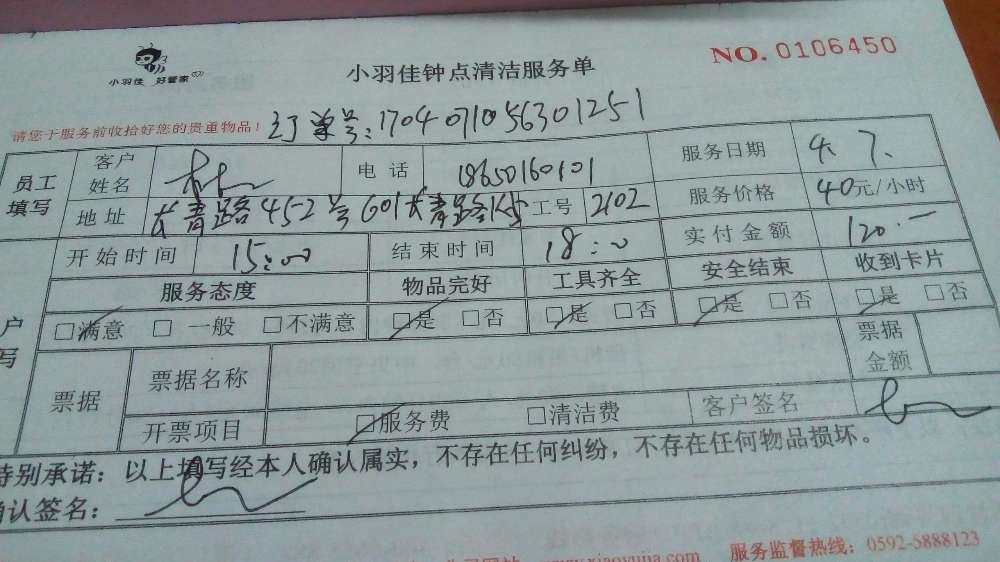 小羽佳 好管家
小羽佳钟点清洁服务单
NO. 0106450
请您于服务前收拾好您的贵重物品！
订单号：17040710563012 51
员工填写 客户姓名 林 电话 18650160101 服务日期 4. 7.
地址 长青路452号601长青路 工号 2102 服务价格 40元/小时
开始时间 15:00 结束时间 18:00 实付金额 120.
服务态度 物品完好 工具齐全 安全结束 收到卡片
□满意 □一般 □不满意 □是 □否 □是 □否 □是 □否 □是 □否
户
写
票据 票据名称 票据金额
开票项目 □服务费 □清洁费 客户签名
特别承诺：以上填写经本人确认属实，不存在任何纠纷，不存在任何物品损坏。
确认签名：
www.xiaoyujia.com 服务监督热线：0592-5888123